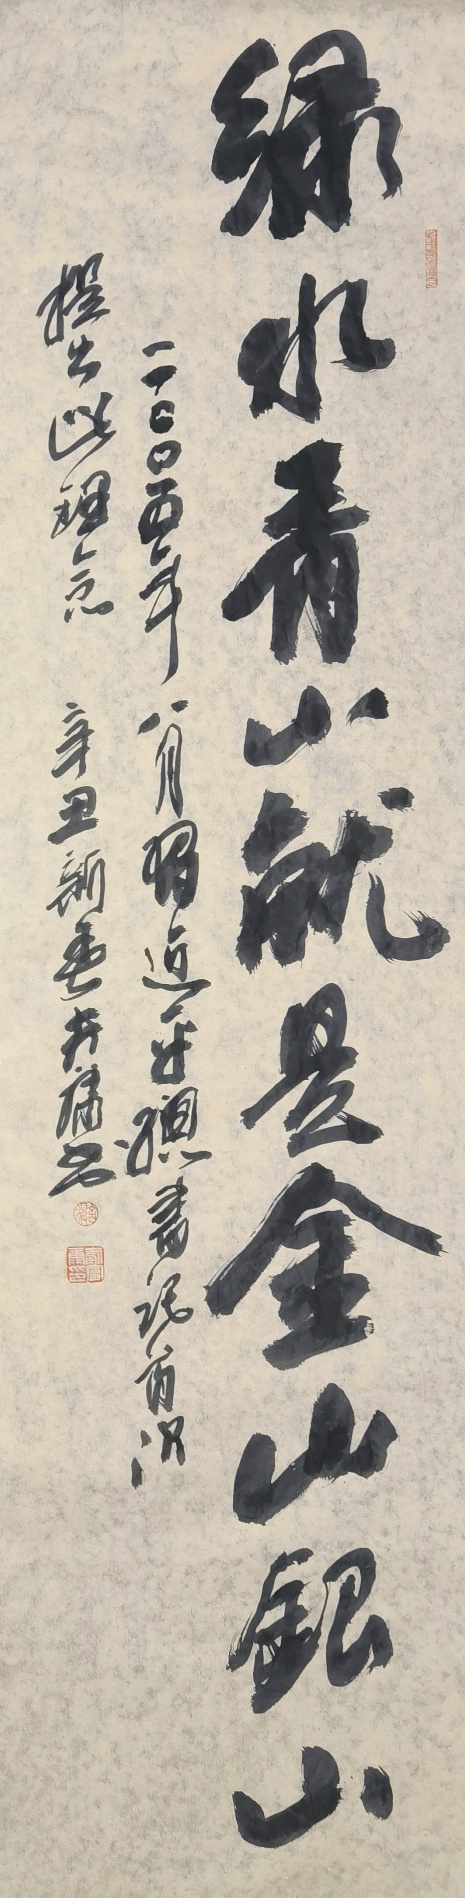 绿水青山就是金山银山
二〇〇五年八月习近平总书记首次
提出此理念 辛丑新春